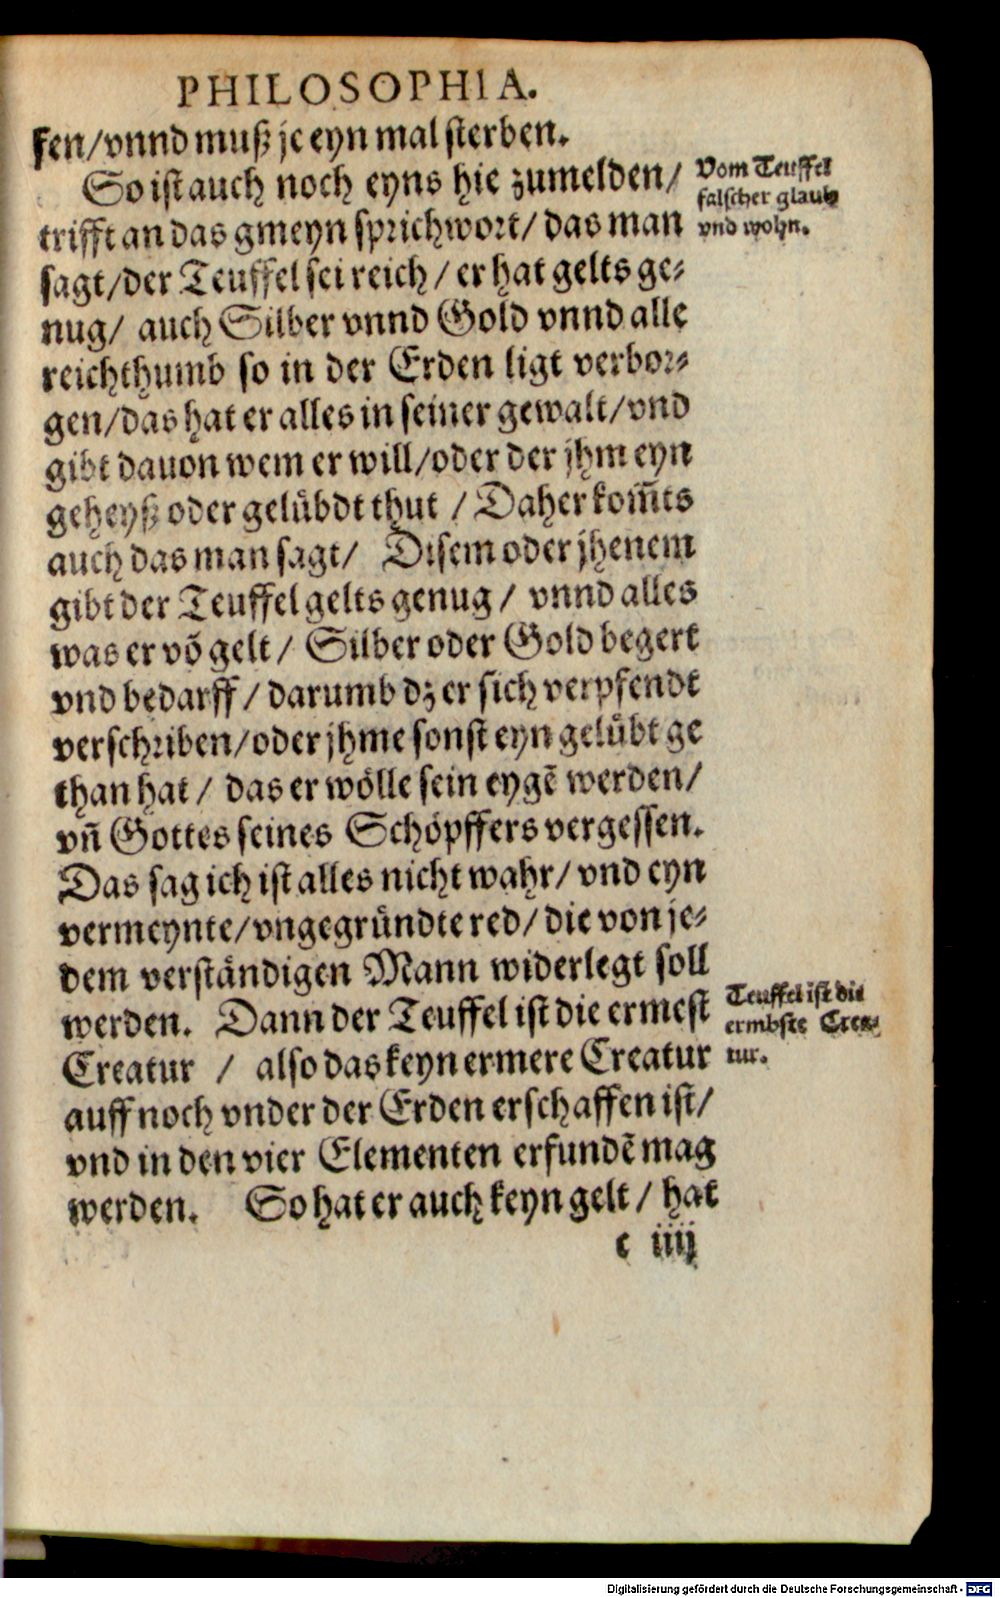 PHILOSOPHIA.
fen/vnnd muß je eyn mal sterben.
So ist auch noch eyns hie zumelden/
trifft an das gmeyn sprichwort/ das man
sagt/der Teuffel sei reich / er hat gelts ge⸗
nug/ auch Silber vnnd Gold vnnd alle
reichthumb so in der Erden ligt verbor⸗
gen/das hat er alles in seiner gewalt/vnd
gibt dauon wem er will/oder der jhm eyn
geheyß oder gelübdt thut / Daher kom̃ts
auch das man sagt/ Disem oder jhenem
gibt der Teuffel gelts genug / vnnd alles
was er võ gelt / Silber oder Gold begert
vnd bedarff / darumb dz er sich verpfendt
verschriben/oder jhme sonst eyn gelübt ge
than hat / das er wölle sein eygẽ werden/
vñ Gottes seines Schöpffers vergessen.
Das sag ich ist alles nicht wahr/ vnd eyn
vermeynte/vngegründte red/ die von je⸗
dem verständigen Mann widerlegt soll
werden. Dann der Teuffel ist die ermest
Creatur / also das keyn ermere Creatur
auff noch vnder der Erden erschaffen ist/
vnd in den vier Elementen erfundẽ mag
werden. So hat er auch keyn gelt / hat
c iiij
Vom Teuffel
falscher glaub
vnd wohn.
Teuffel ist die
ermbste Crea⸗
tur.
Digitalisierung gefördert durch die Deutsche Forschungsgemeinschaft - DFG